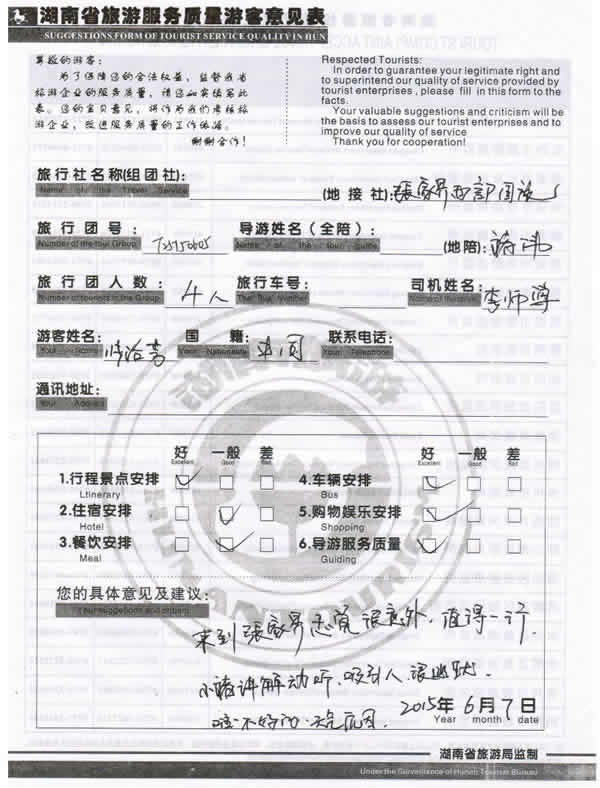 湖南省旅游服务质量游客意见表
SUGGESTIONS FORM OF TOURIST SERVICE QUALITY IN HUN
尊敬的游客:
为了保障您的合法权益,监督我省
旅游企业的服务质量,请您如实填写此
表。您的宝贵意见,将作为我们考核旅
游企业,改进服务质量的工作依据。
谢谢合作!
Respected Tourists:
In order to guarantee your legitimate right and
to superintend our quality of service provided by
tourist enterprises , please fill in this form to the
facts.
Your valuable suggestions and criticism will be
the basis to assess our tourist enterprises and to
improve our quality of service
Thank you for cooperation!
旅行社名称(组团社):
(地接社):张家界西部国旅
Name of the Travel Service
旅行团号:
导游姓名(全陪):
(地陪):
Number of the tour Group
Name of the tour guide
旅行团人数: 4人
旅行车号:
司机姓名: 李师傅
Number of tourists in the Group
The Bus Number
游客姓名:
国籍:
联系电话:
Your Name
Your Nationality
Your Telephone
通讯地址:
Your Address
好 一般 差 好 一般 差
Excellent Good Bad Excellent Good Bad
1.行程景点安排 4.车辆安排
Ltinerary Bus
2.住宿安排 5.购物娱乐安排
Hotel Shopping
3.餐饮安排 6.导游服务质量
Meal Guiding
您的具体意见及建议:
Your suggestions and critism
来到张家界感觉很意外.值得一行.
小蒋讲解动听.吸引人.很幽默.
2015年6月7日
Year month date
HUNAN TOURISM
湖南省旅游局监制
Under the Surveillance of Hunan Tourism Bureau